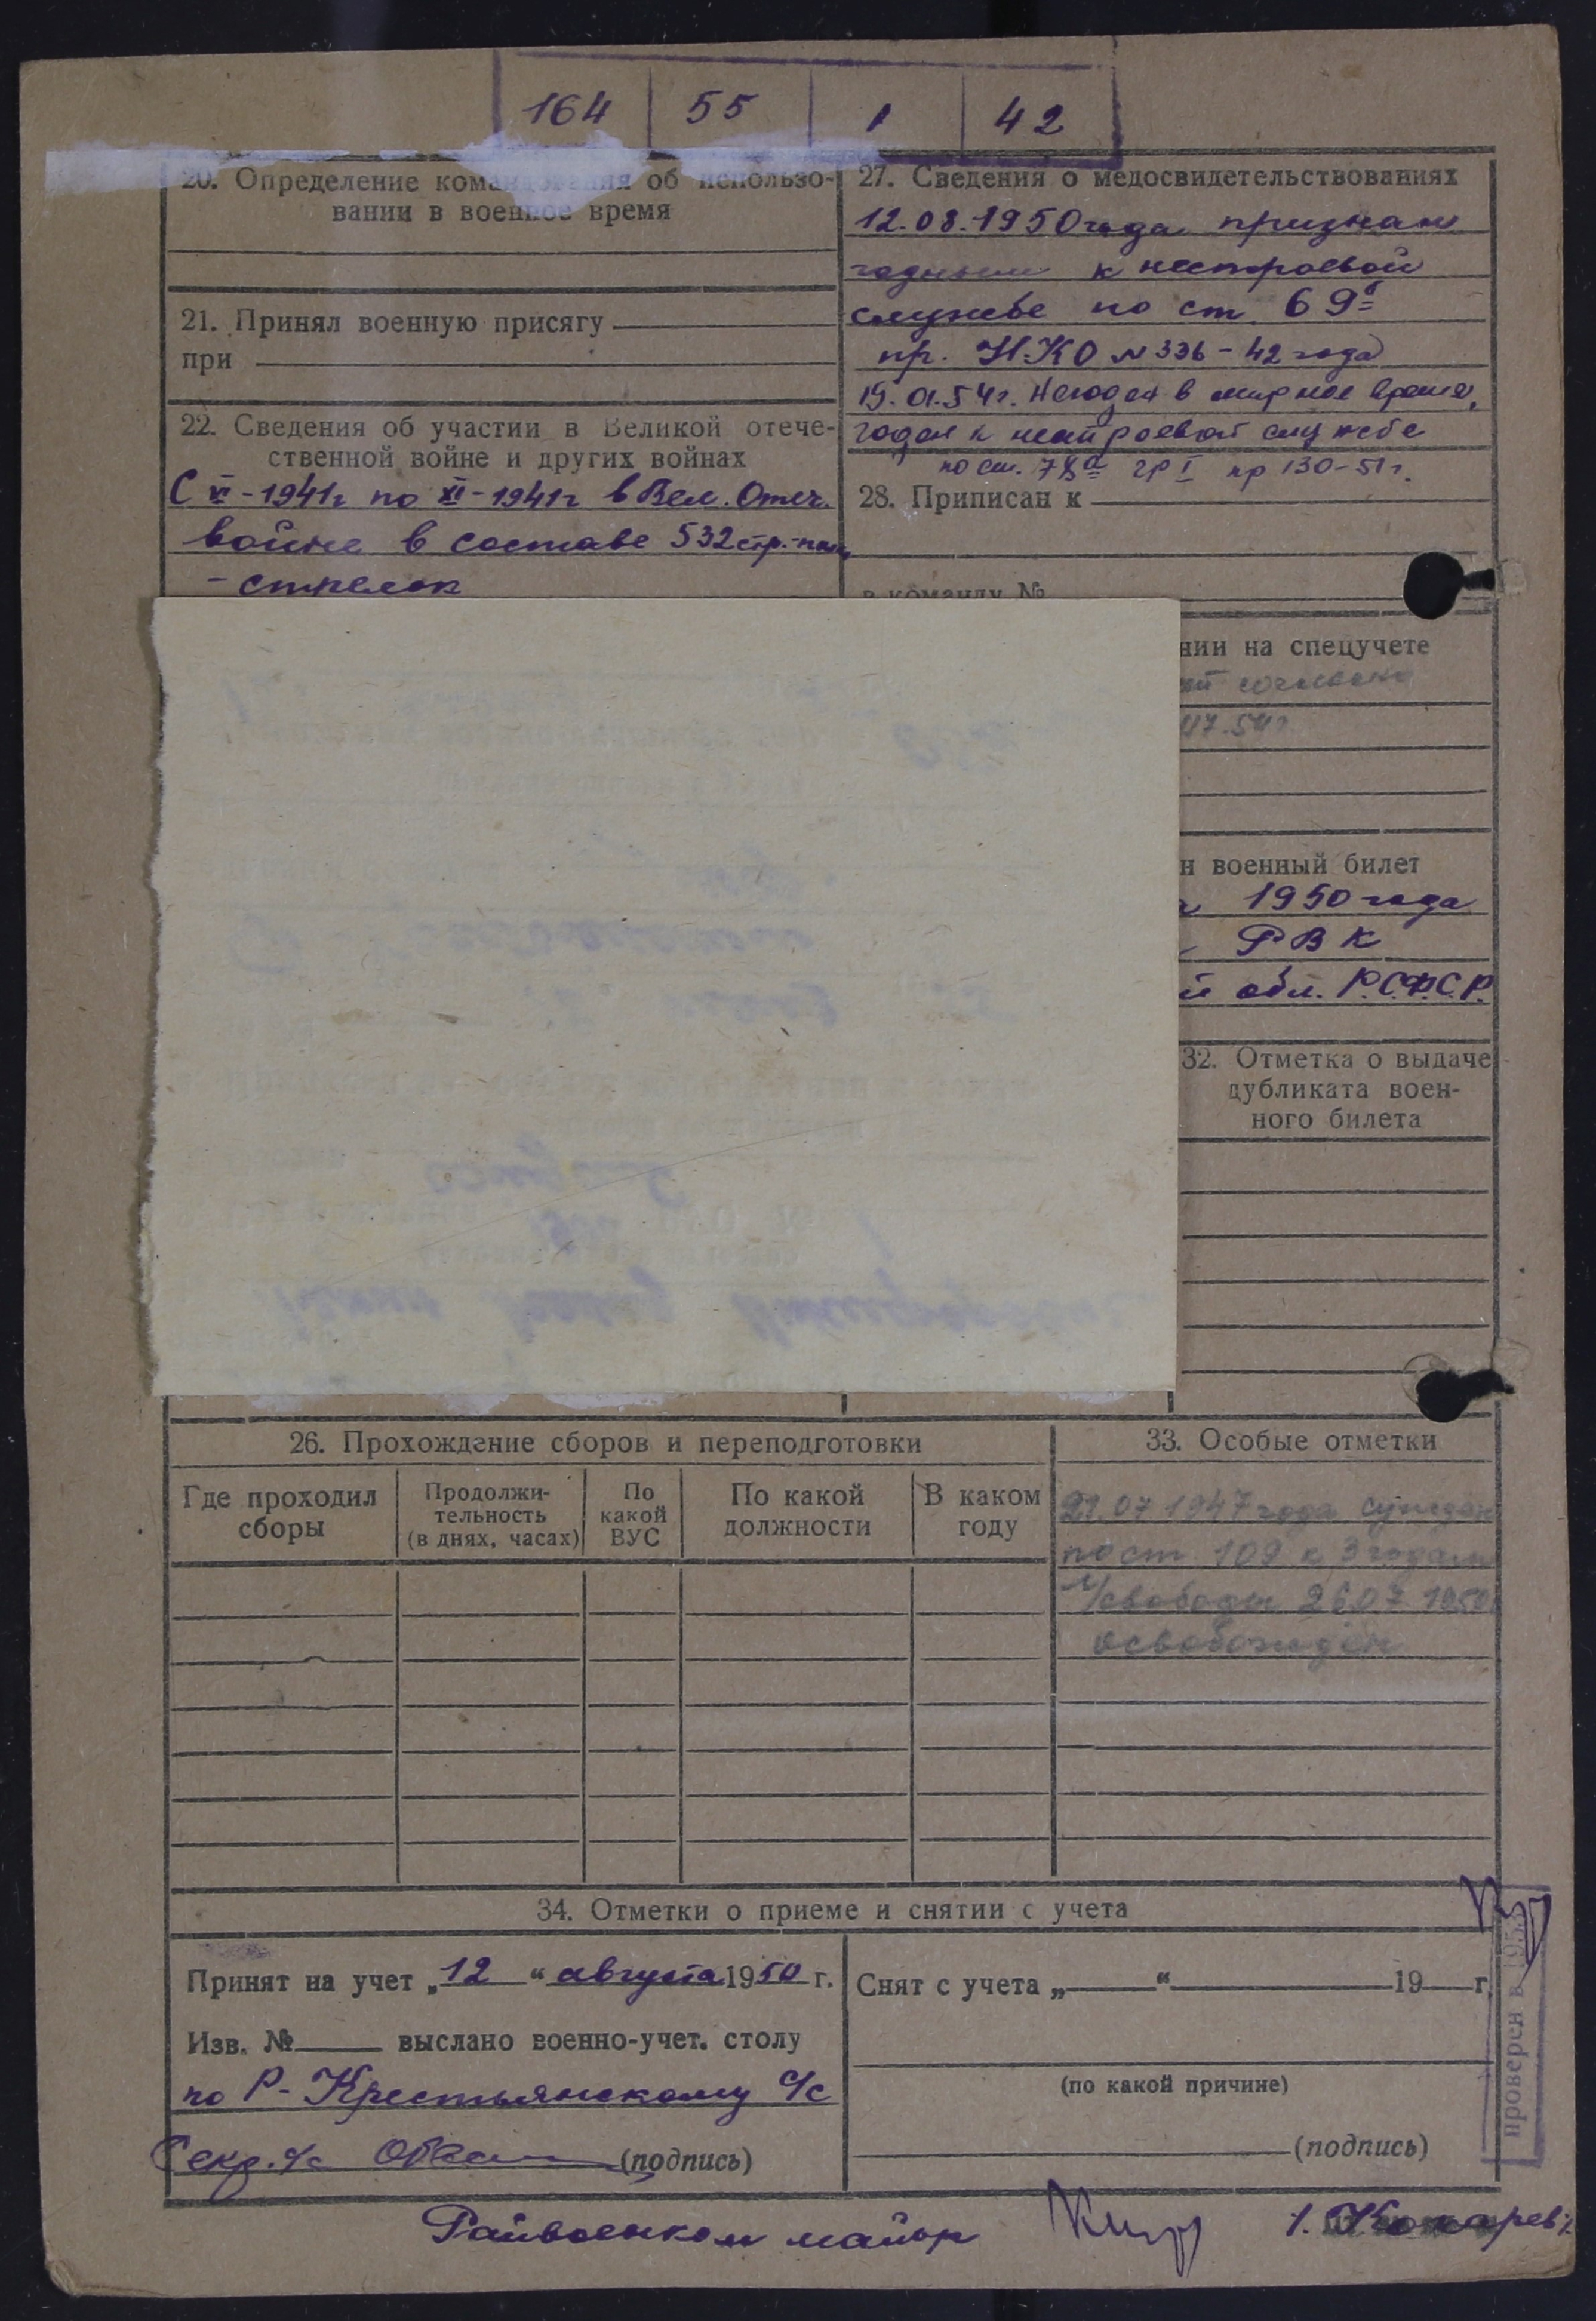 164 55 1 42
20. Определение командования об использо-
вании в военное время
21. Принял военную присягу
при
22. Сведения об участии в Великой отече-
ственной войне и других войнах
С VI-1941г по XI-1941г в Вел. Отеч.
войне в составе 532 стр.-
- стрелок
27. Сведения о медосвидетельствованиях
12.08.1950 года признан
годным к нестроевой
службе по ст. 69б
пр. Н.К.О №336-42 года
19.01.54г. Негоден в мирное время,
годен к нестроевой службе
по ст. 78а гр I пр 130-51г.
28. Приписан к
в команду №
нии на спецучете
47.54г
н военный билет
1950 года
РВК
й обл. Р.С.Ф.С.Р.
32. Отметка о выдаче
дубликата воен-
ного билета
26. Прохождение сборов и переподготовки
Где проходил
сборы
Продолжи-
тельность
(в днях, часах)
По
какой
ВУС
По какой
должности
В каком
году
33. Особые отметки
07 1947 года сужден
по ст 109 к 3 годам
л/свободы 26.07 1950
освобожден
34. Отметки о приеме и снятии с учета
Принят на учет „12“ августа 1950 г.
Изв. № выслано военно-учет. столу
по Р-Крестьянскому с/с
Секр. с/с (подпись)
Снят с учета „ “ 19 г.
(по какой причине)
(подпись)
проверен в 195
Райвоенком майор